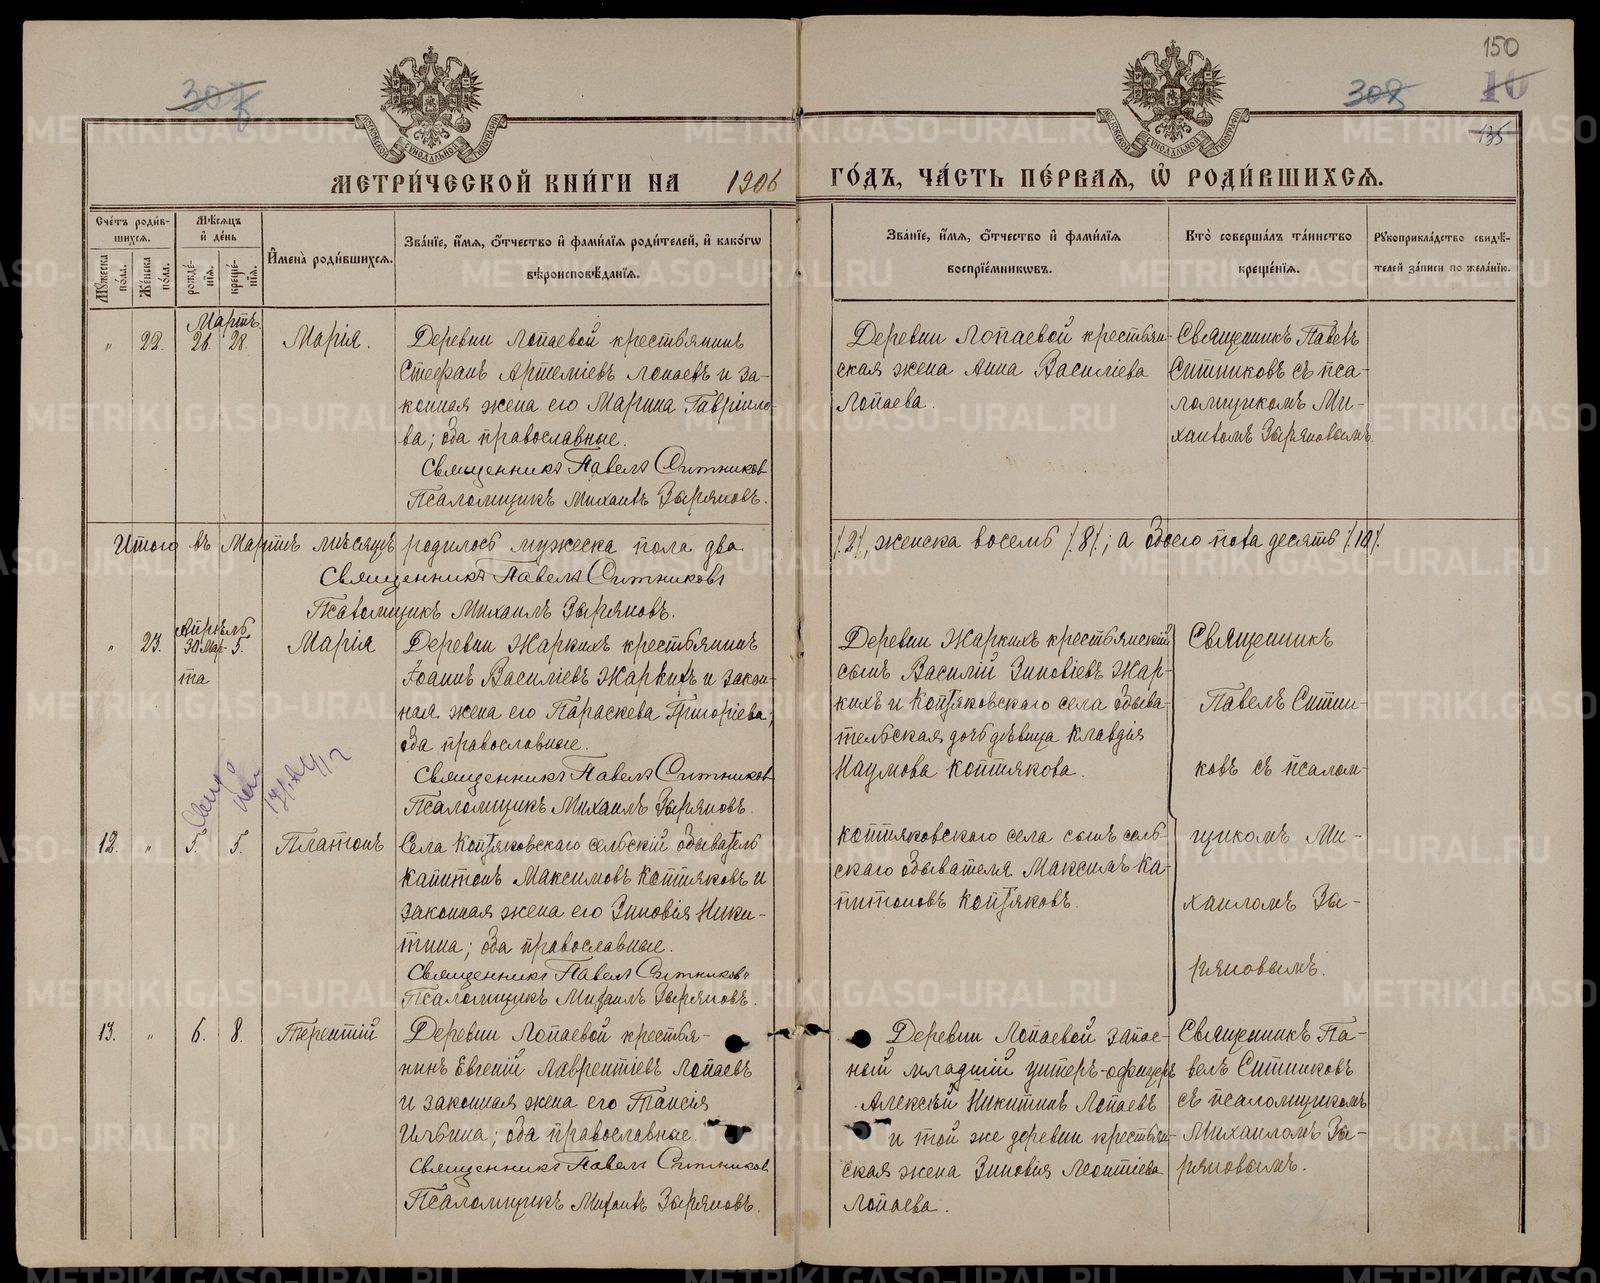 150
307
308
10
135
МЕТРИ́ЧЕСКОЙ КНИ́ГИ НА 1906 ГО́ДЪ, ЧА́СТЬ ПЕ́РВАЯ, Ѡ РОДИ́ВШИХСЯ.
Сче́тъ роди́в-
шихся.
Мѣ́сяцъ
и҆ де́нь
И҆мена̀ роди́вшихся.
Зва́нїе, и҆́мя, ѻ҆́тчество и҆ фами́лїя роди́телей, и҆ како́гѡ
вѣроисповѣ́данїя.
Зва́нїе, и҆́мя, ѻ҆́тчество и҆ фами́лїя
воспрїе́мникѡвъ.
Кто̀ соверша́лъ та́инство
креще́нїя.
Рꙋкоприкла́дство свидѣ́-
телей за́писи по жела́нїю.
Мꙋ́жеска
по́ла.
Же́нска
по́ла.
рожде́-
нїя.
креще́-
нїя.
Мартъ
" 22. 26 28. Марія.
Деревни Лопаевой крестьянинъ
Стефанъ Артеміевъ Лопаевъ и за-
конная жена его Марина Гавріило-
ва; оба православные.
Священникъ Павелъ Ситников
Псаломщикъ Михаилъ Зыряновъ.
Деревни Лопаевой крестьян-
ская жена Анна Василіева
Лопаева.
Священникъ Павелъ
Ситниковъ съ пса-
ломщикомъ Ми-
хаиломъ Зыряновымъ.
Итого въ Мартѣ мѣсяцѣ родилось мужеска пола два /2/, женска восемь /8/; а обоего пола десять /10/.
Священникъ Павелъ Ситниковъ
Псаломщикъ Михаилъ Зыряновъ.
Апрѣль
" 23. 30 Мар- 5. Марія
та
Деревни Жаркихъ крестьянинъ
Іоаннъ Василіевъ Жаркихъ и закон-
ная жена его Параскева Григоріева;
оба православные.
Священникъ Павелъ Ситников
Псаломщикъ Михаилъ Зыряновъ.
Деревни Жаркихъ крестьянскій
сынъ Василій Зиновіевъ Жар-
кихъ и Коптяковскаго села обыва-
тельская дочь дѣвица Клавдія
Наумова Коптякова.
Священникъ
Павелъ Ситни-
ковъ съ псалом-
щикомъ Ми-
хаиломъ Зы-
ряновымъ.
12. " 5. 5. Платонъ
Села Коптяковскаго сельскій обыватель
Капитонъ Максимовъ Коптяковъ и
законная жена его Зиновія Ники-
тина; оба православные.
Священникъ Павелъ Ситниковъ
Псаломщикъ Михаилъ Зыряновъ.
Коптяковскаго села сынъ сель-
скаго обывателя Максимъ Ка-
питоновъ Коптяковъ.
13. " 6. 8. Терентій
Деревни Лопаевой крестья-
нинъ Евгеній Лаврентіевъ Лопаевъ
и законная жена его Таисія
Ильина; оба православные.
Священникъ Павелъ Ситников
Псаломщикъ Михаилъ Зыряновъ.
Деревни Лопаевой запас-
ной младшій унтеръ-офицеръ
Алексѣй Никитинъ Лопаевъ
и той же деревни крестьян-
ская жена Зиновія Леонтіева
Лопаева.
Священникъ Па-
велъ Ситниковъ
съ псаломщикомъ
Михаиломъ Зы-
ряновымъ.
METRIKI.GASO-URAL.RU